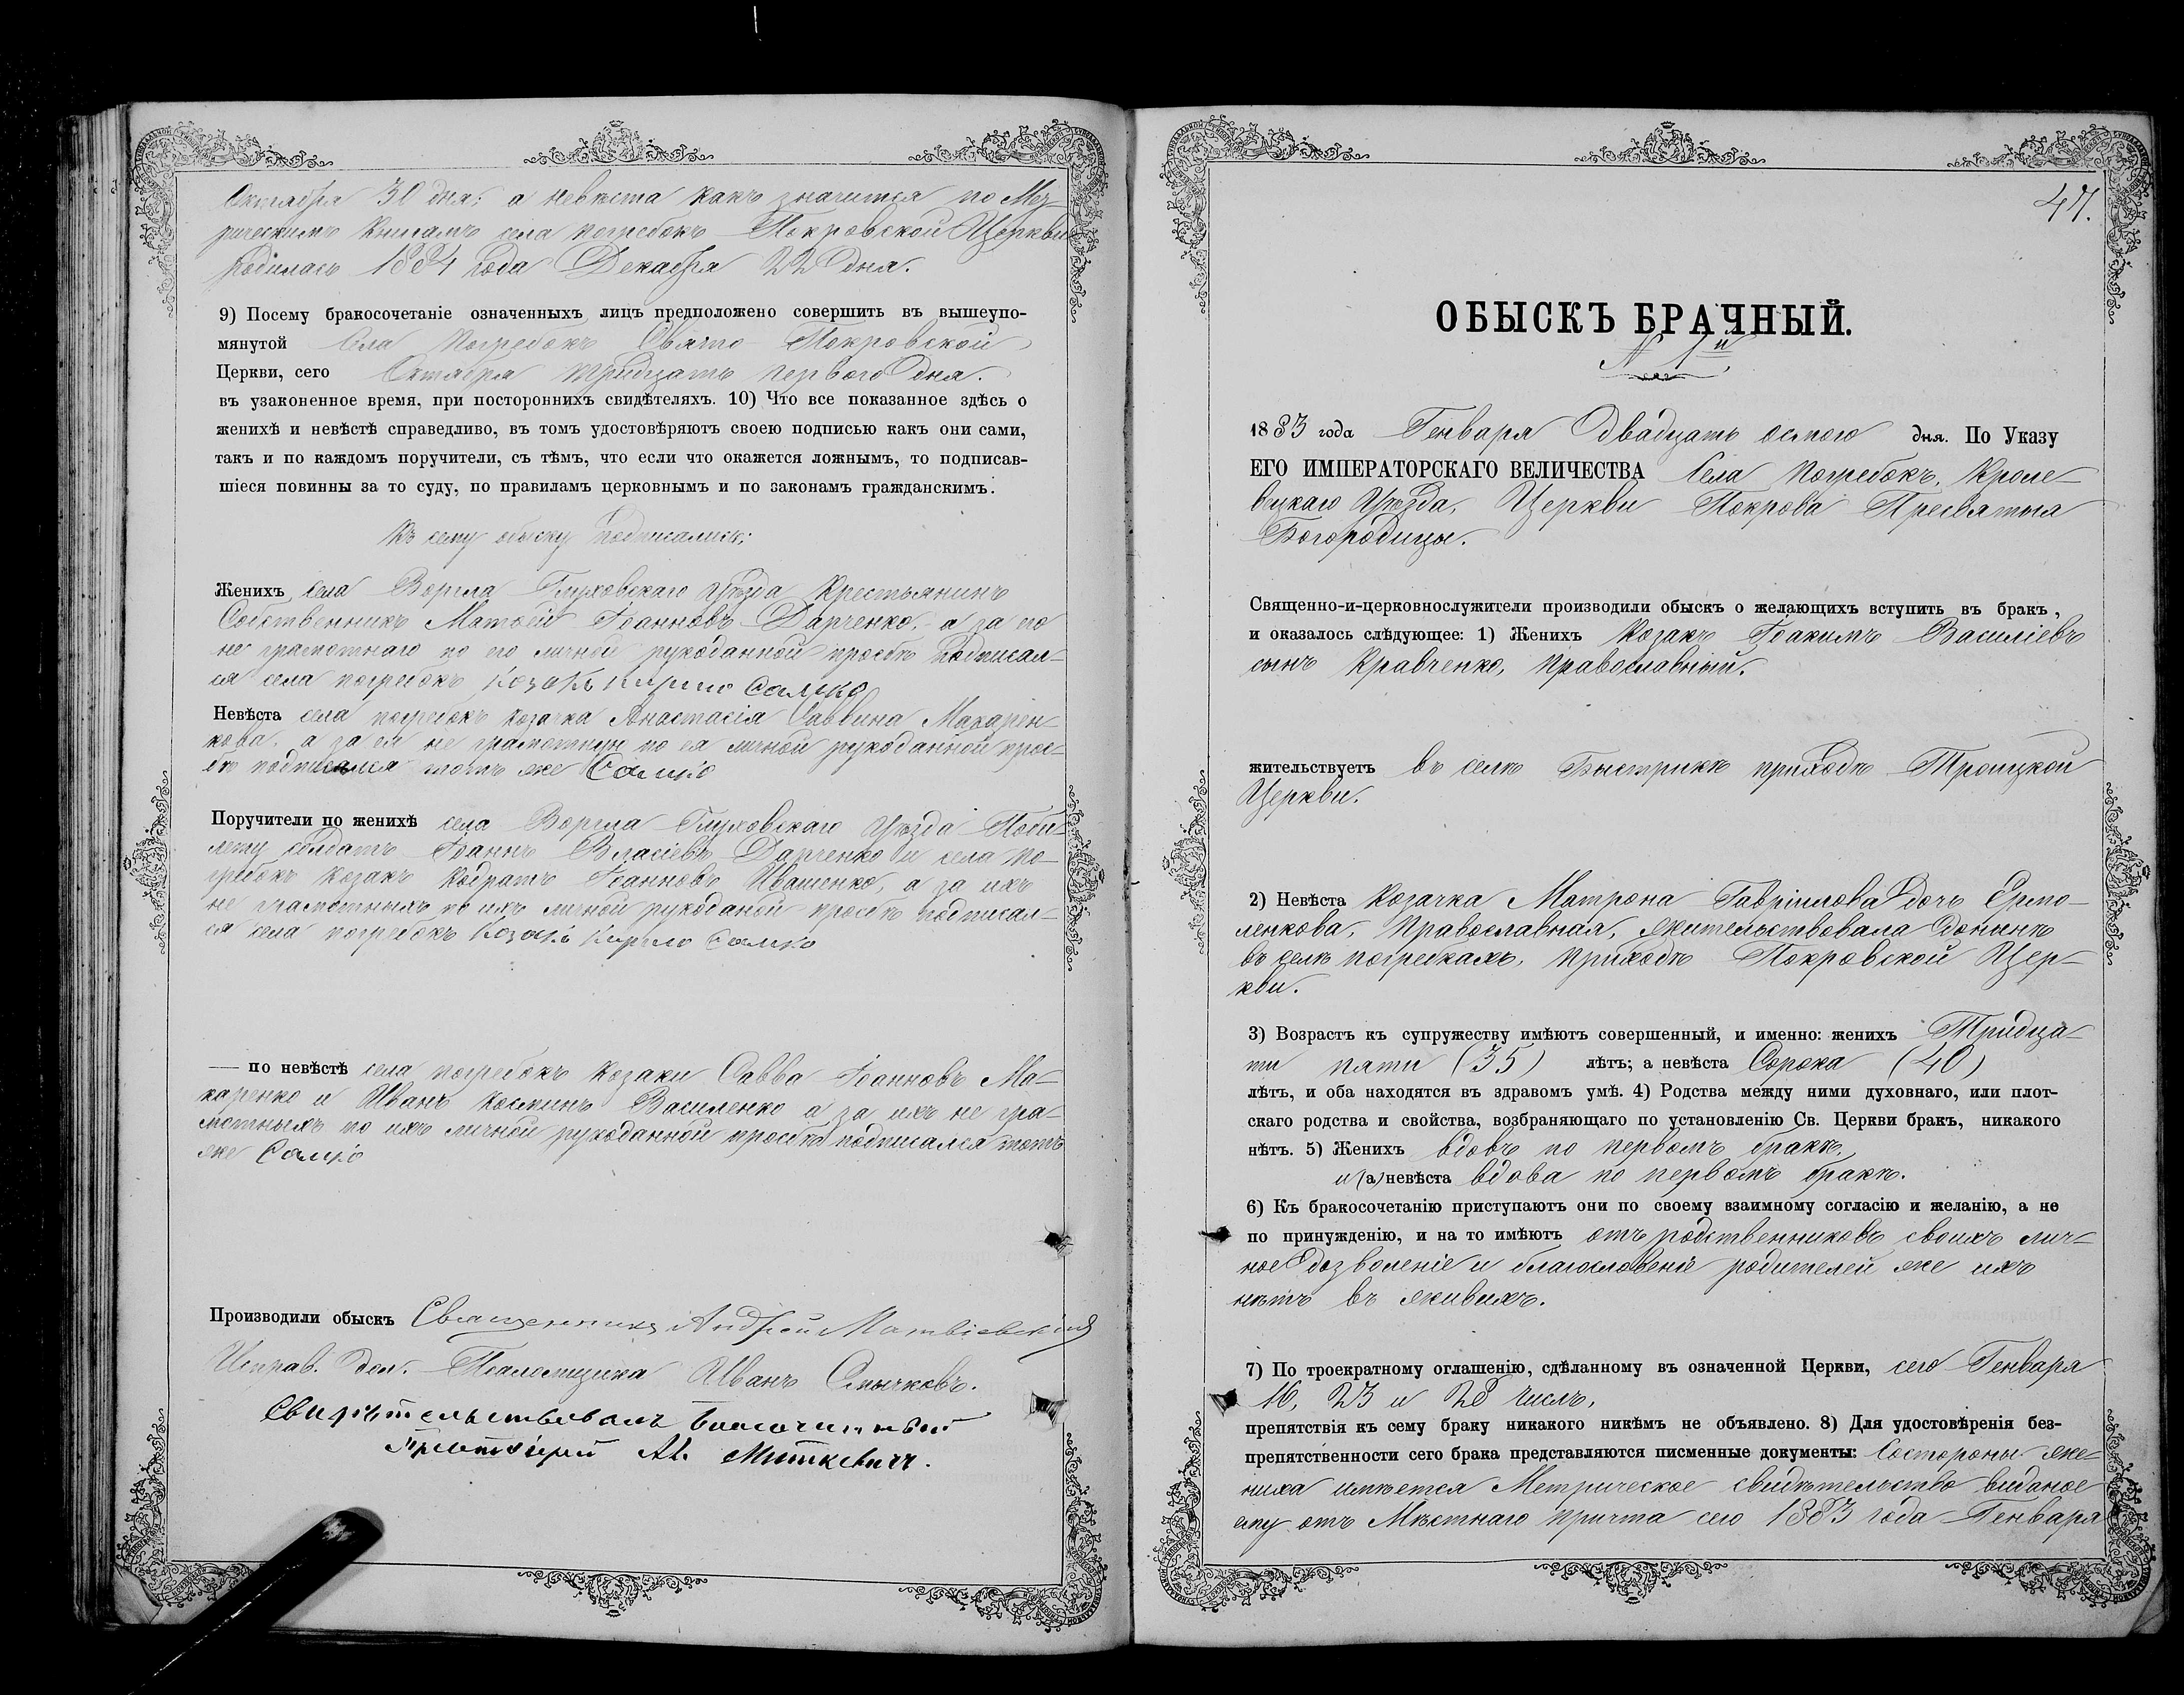 Октября 30 дня; а невѣста какъ значится по Мет-
рическимъ Книгамъ села погребокъ Покровской Церкви
родилась 1884 года Декабря 22 дня.
9) Посему бракосочетаніе означенныхъ лицъ предположено совершить въ вышеупо-
мянутой Села Погребокъ Свято Покровской
Церкви, сего Октября тридцать перваго дня.
въ узаконенное время, при постороннихъ свидѣтеляхъ. 10) Что все показанное здѣсь о
женихѣ и невѣстѣ справедливо, въ томъ удостовѣряютъ своею подписью какъ они сами,
такъ и по каждомъ поручители, съ тѣмъ, что если что окажется ложнымъ, то подписав-
шіеся повинны за то суду, по правиламъ церковнымъ и по законамъ гражданскимъ.
Къ сему обыску подписались:
Женихъ села Воргла Глуховскаго Уѣзда Крестьянинъ
Собственникъ Матѳей Іоанновъ Дарченко, а за него
не грамотнаго по его личной рукоданной просьбѣ подписал-
ся села погребокъ козакъ Кирило Самко
Невѣста села погребокъ козачка Анастасія Саввина Макарен-
кова, а за ея не грамотную по ея личной рукоданной прос-
бѣ подписался тотъ же Самко
Поручители по женихѣ села Воргла Глуховскаго Уѣзда Поби-
лету солдатъ Іоаннъ Власіевъ Дарченко и села по-
гребокъ козакъ Кодратъ Іоанновъ Ивашенко, а за ихъ
не грамотныхъ по ихъ личной рукоданой просьбѣ подписал-
ся села погребокъ козакъ Кирило Самко
— по невѣстѣ села погребокъ козаки Савва Іоанновъ Ма-
каренко и Иванъ Косминъ Василенко а за ихъ не гра-
мотныхъ по ихъ личной рукоданной просьбѣ подписался тотъ
же Самко
Производили обыскъ Священникъ Андрей Матвіевскій
Исправ. дол. Псаломщика Иванъ Смычковъ.
Свидѣтельствовалъ Благочинный
Протоіерей Ал. Миткевичъ.
47.
ОБЫСКЪ БРАЧНЫЙ.
№ 1й
1883 года Генваря Двадцать осмого дня. По Указу
ЕГО ИМПЕРАТОРСКАГО ВЕЛИЧЕСТВА Села Погребокъ, Кроле-
вецкаго Уѣзда, Церкви Покрова Пресвятыя
Богородицы.
Священно-и-церковнослужители производили обыскъ о желающихъ вступить въ бракъ,
и оказалось слѣдующее: 1) Женихъ Козакъ Іоакимъ Василіевъ
сынъ Кравченко, православный.
жительствуетъ въ селѣ Быстрикѣ приходѣ Троицкой
Церкви.
2) Невѣста Козачка Матрона Гавріилова дочь Ермо-
ленкова, Православная, жительствовала донынѣ
въ селѣ погребкахъ, приходѣ Покровской Цер-
кви.
3) Возрастъ къ супружеству имѣютъ совершенный, и именно: женихъ Тридца-
ти пяти (35) лѣтъ; а невѣста Сорока (40)
лѣтъ, и оба находятся въ здравомъ умѣ. 4) Родства между ними духовнаго, или плот-
скаго родства и свойства, возбраняющаго по установленію Св. Церкви бракъ, никакого
нѣтъ. 5) Женихъ вдовъ по первомъ бракѣ,
и (а) невѣста вдова по первомъ бракѣ.
6) Къ бракосочетанію приступаютъ они по своему взаимному согласію и желанію, а не
по принужденію, и на то имѣютъ отъ родственниковъ своихъ лич-
ное дозволеніе и благословеніе родителей же ихъ
нѣтъ въ живихъ.
7) По троекратному оглашенію, сдѣланному въ означенной Церкви, сего Генваря
16, 23 и 28 числъ,
препятствія къ сему браку никакого никѣмъ не объявлено. 8) Для удостовѣренія без-
препятственности сего брака представляются писменные документы: Состороны же-
ниха имѣется Метрическое свидѣтельство виданое
ему отъ Мѣстнаго причта сего 1883 года Генваря